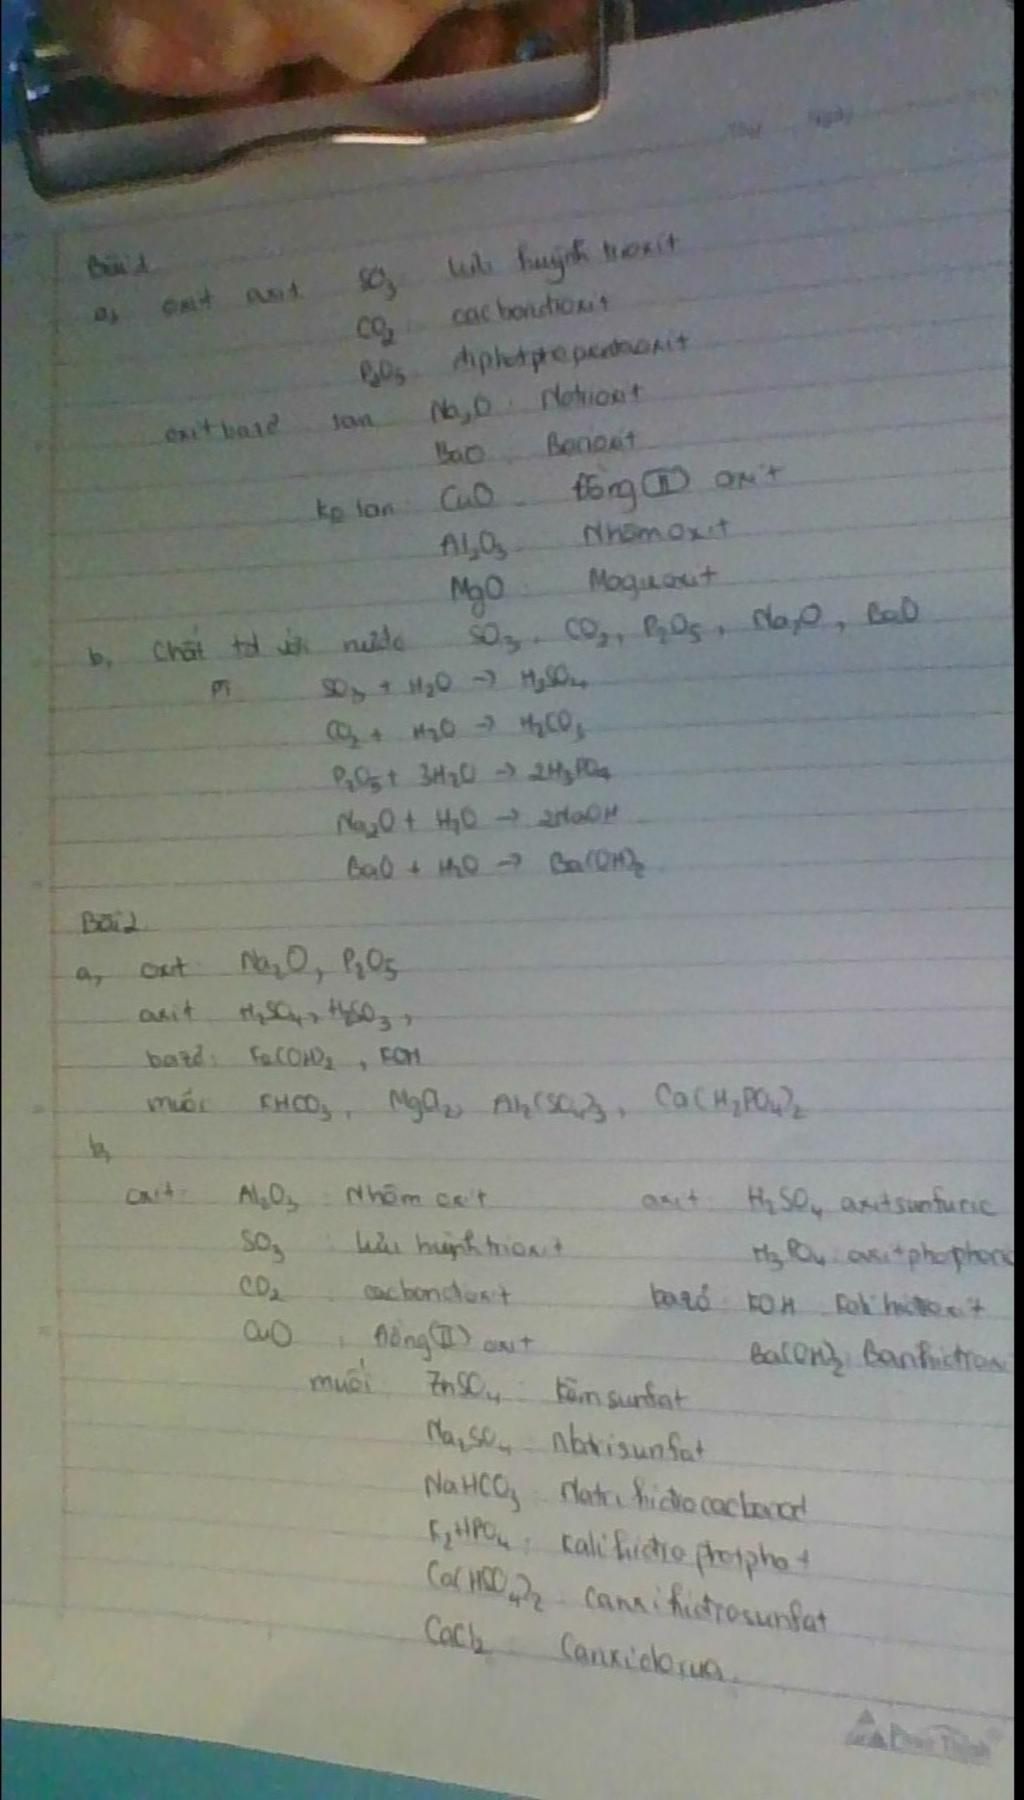 Bài 1
a, oxit axit SO₃ lưu huỳnh trioxit
CO₂ cacbondioxit
P₂O₅ điphotphopentaoxit
oxit bazơ tan Na₂O : Natrioxit
BaO Barioxit
ko tan CuO Đồng (II) oxit
Al₂O₃ Nhôm oxit
MgO Magieoxit
b, Chất td với nước SO₃, CO₂, P₂O₅, Na₂O, BaO
SO₃ + H₂O → H₂SO₄
CO₂ + H₂O → H₂CO₃
P₂O₅ + 3H₂O → 2H₃PO₄
Na₂O + H₂O → 2NaOH
BaO + H₂O → Ba(OH)₂
Bài 2
a, oxit Na₂O, P₂O₅
axit H₂SO₄, H₂SO₃,
bazơ: Fe(OH)₂, KOH
muối KHCO₃, MgCl₂, Al₂(SO₄)₃, Ca(H₂PO₄)₂
b,
oxit: Al₂O₃ : Nhôm oxit axit: H₂SO₄ axit sunfuric
SO₃ : lưu huỳnh trioxit H₃PO₄: axit photphoric
CO₂ cacbondioxit bazơ KOH Kali hidroxit
CuO : Đồng (II) oxit Ba(OH)₂: Bari hidroxi
muối ZnSO₄ : Kẽm sunfat
Na₂SO₄ : Natri sunfat
NaHCO₃ : Natri hidrocacbonat
K₂HPO₄ : Kali hidro photphat
Ca(HSO₄)₂ : canxi hidrosunfat
CaCl₂ : Canxi clorua.